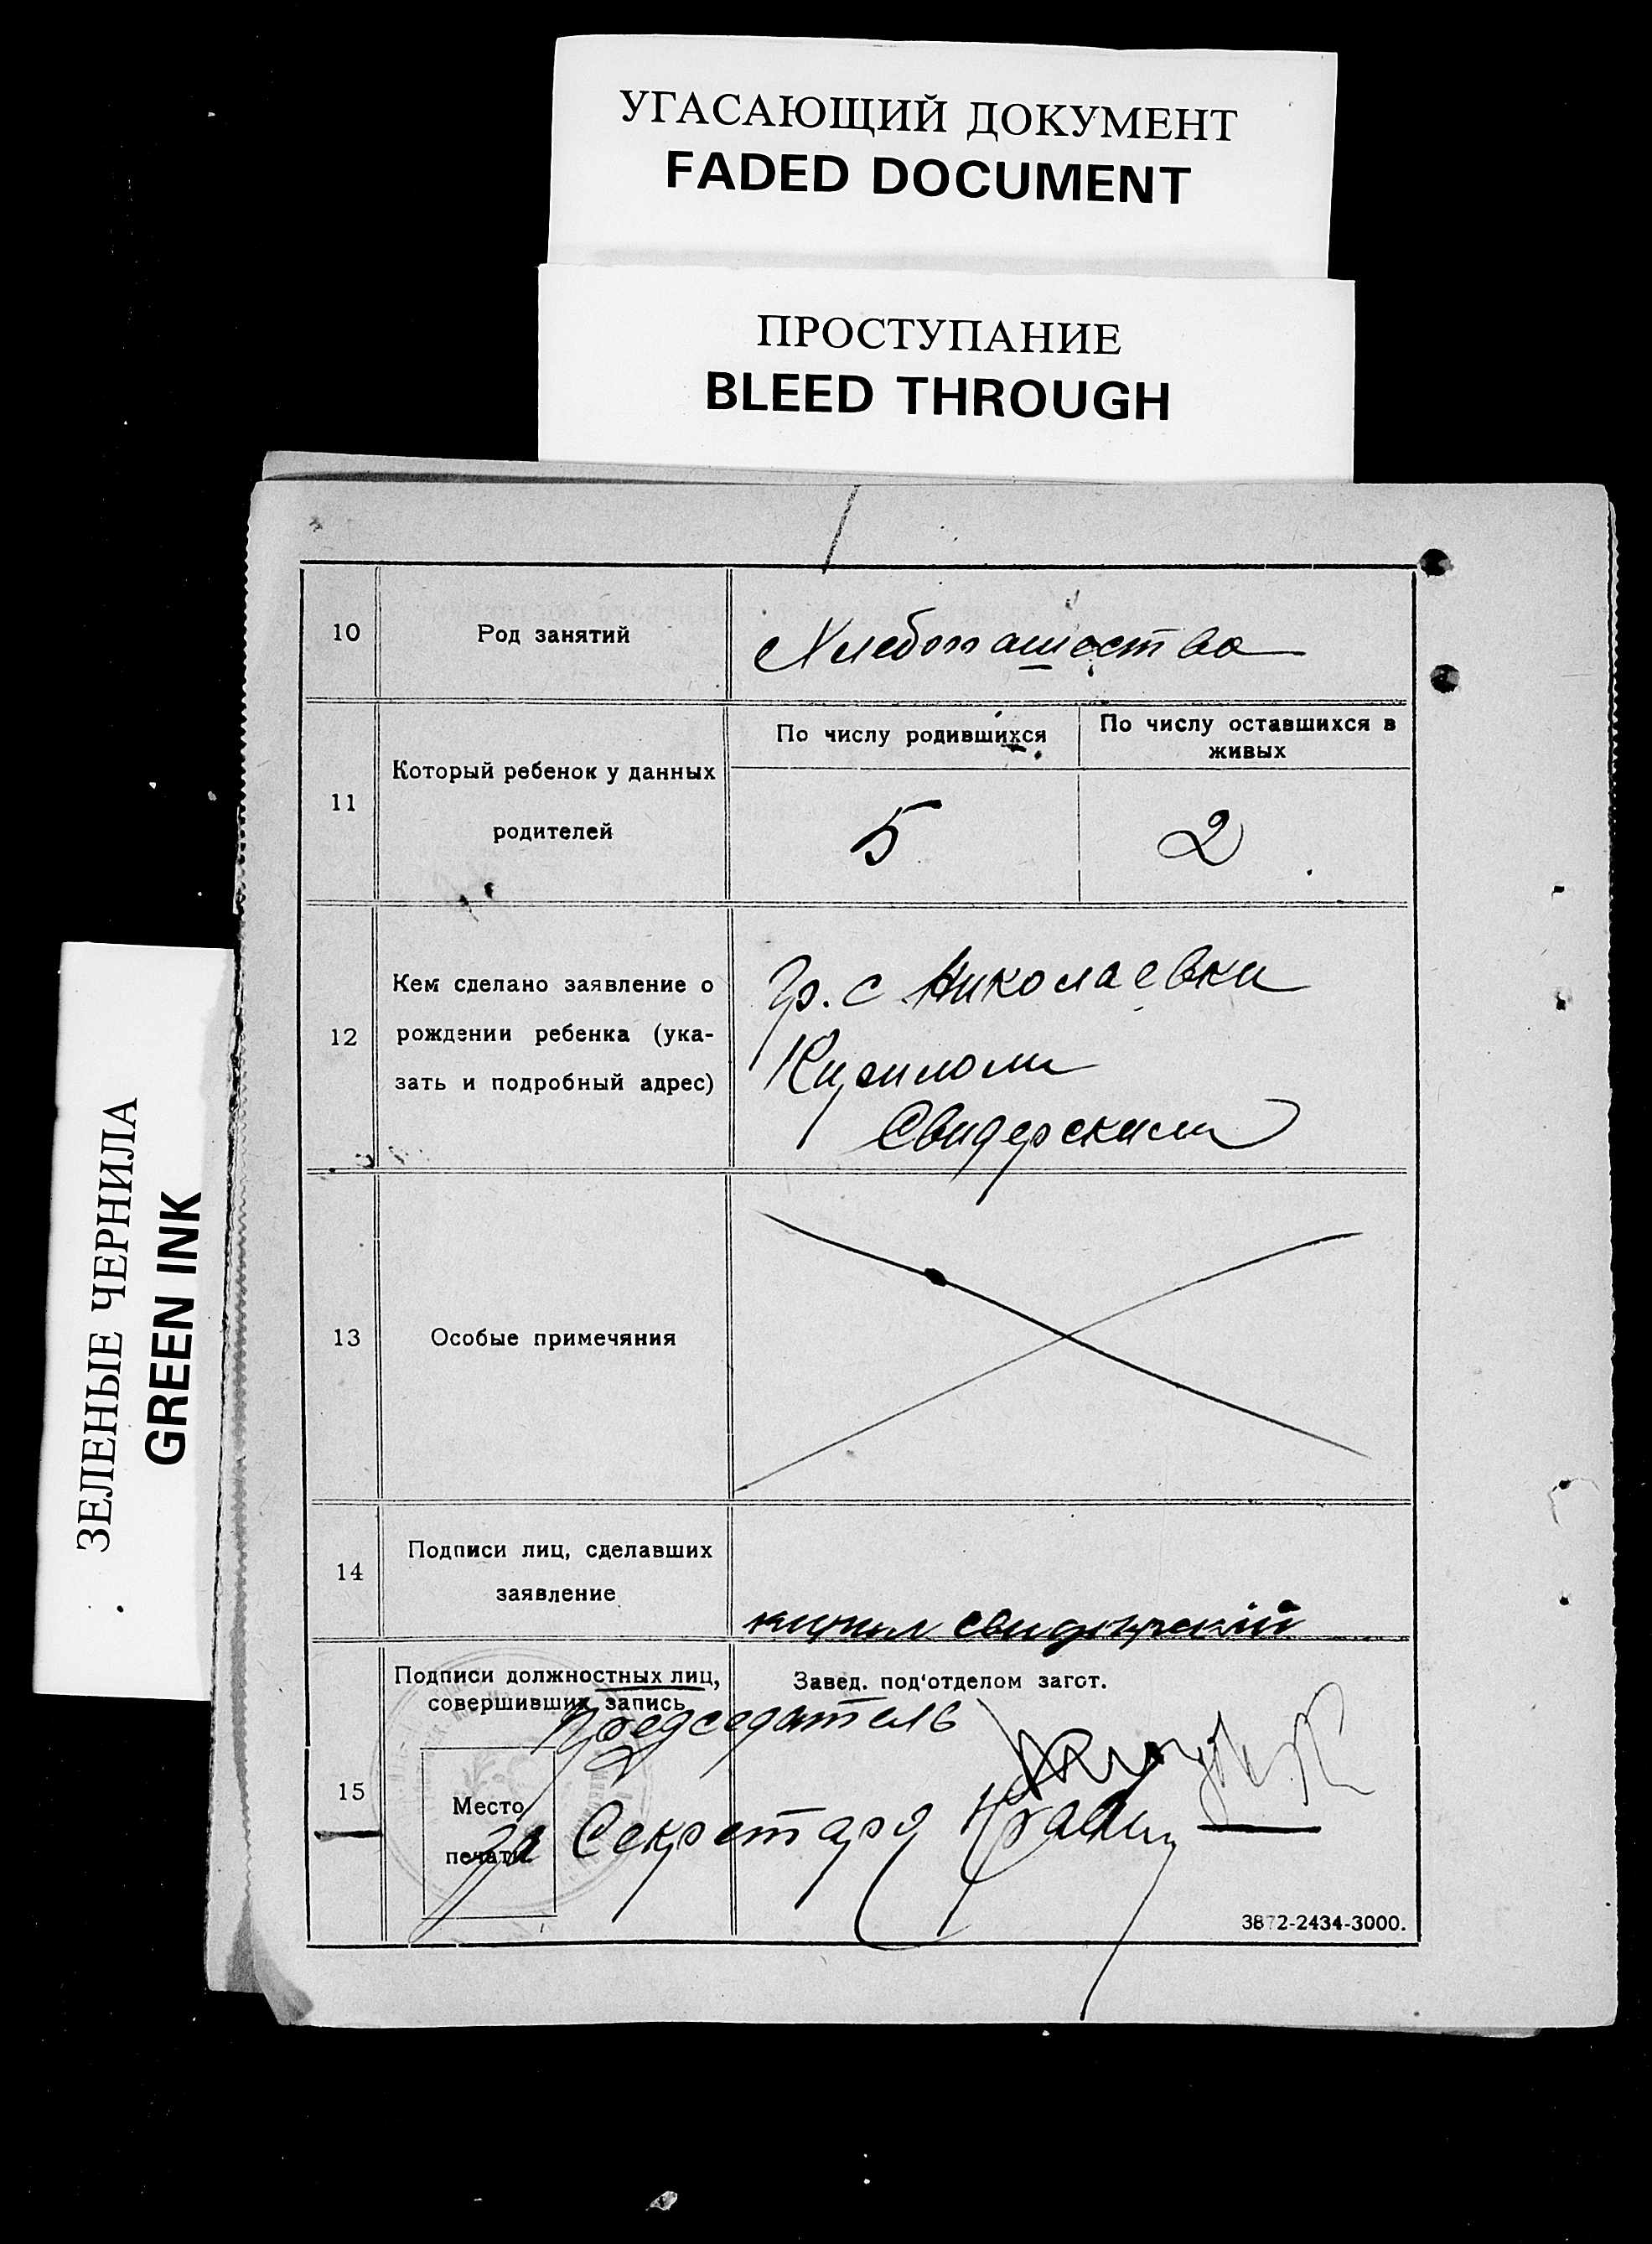 УГАСАЮЩИЙ ДОКУМЕНТ
FADED DOCUMENT
ПРОСТУПАНИЕ
BLEED THROUGH
ЗЕЛЕНЫЕ ЧЕРНИЛА
GREEN INK
10
Род занятий
Хлебопашество
11
Который ребенок у данных
родителей
По числу родившихся
По числу оставшихся в
живых
5
2
12
Кем сделано заявление о
рождении ребенка (ука-
зать и подробный адрес)
Гр. с Николаевки
Кирилом
Свидерским
13
Особые примечяния
14
Подписи лиц, сделавших
заявление
кирил свидерский
15
Подписи должностных лиц,
совершивших запись
Завед. под'отделом загот.
Председатель
Место
печати
За Секретаря
3872-2434-3000.